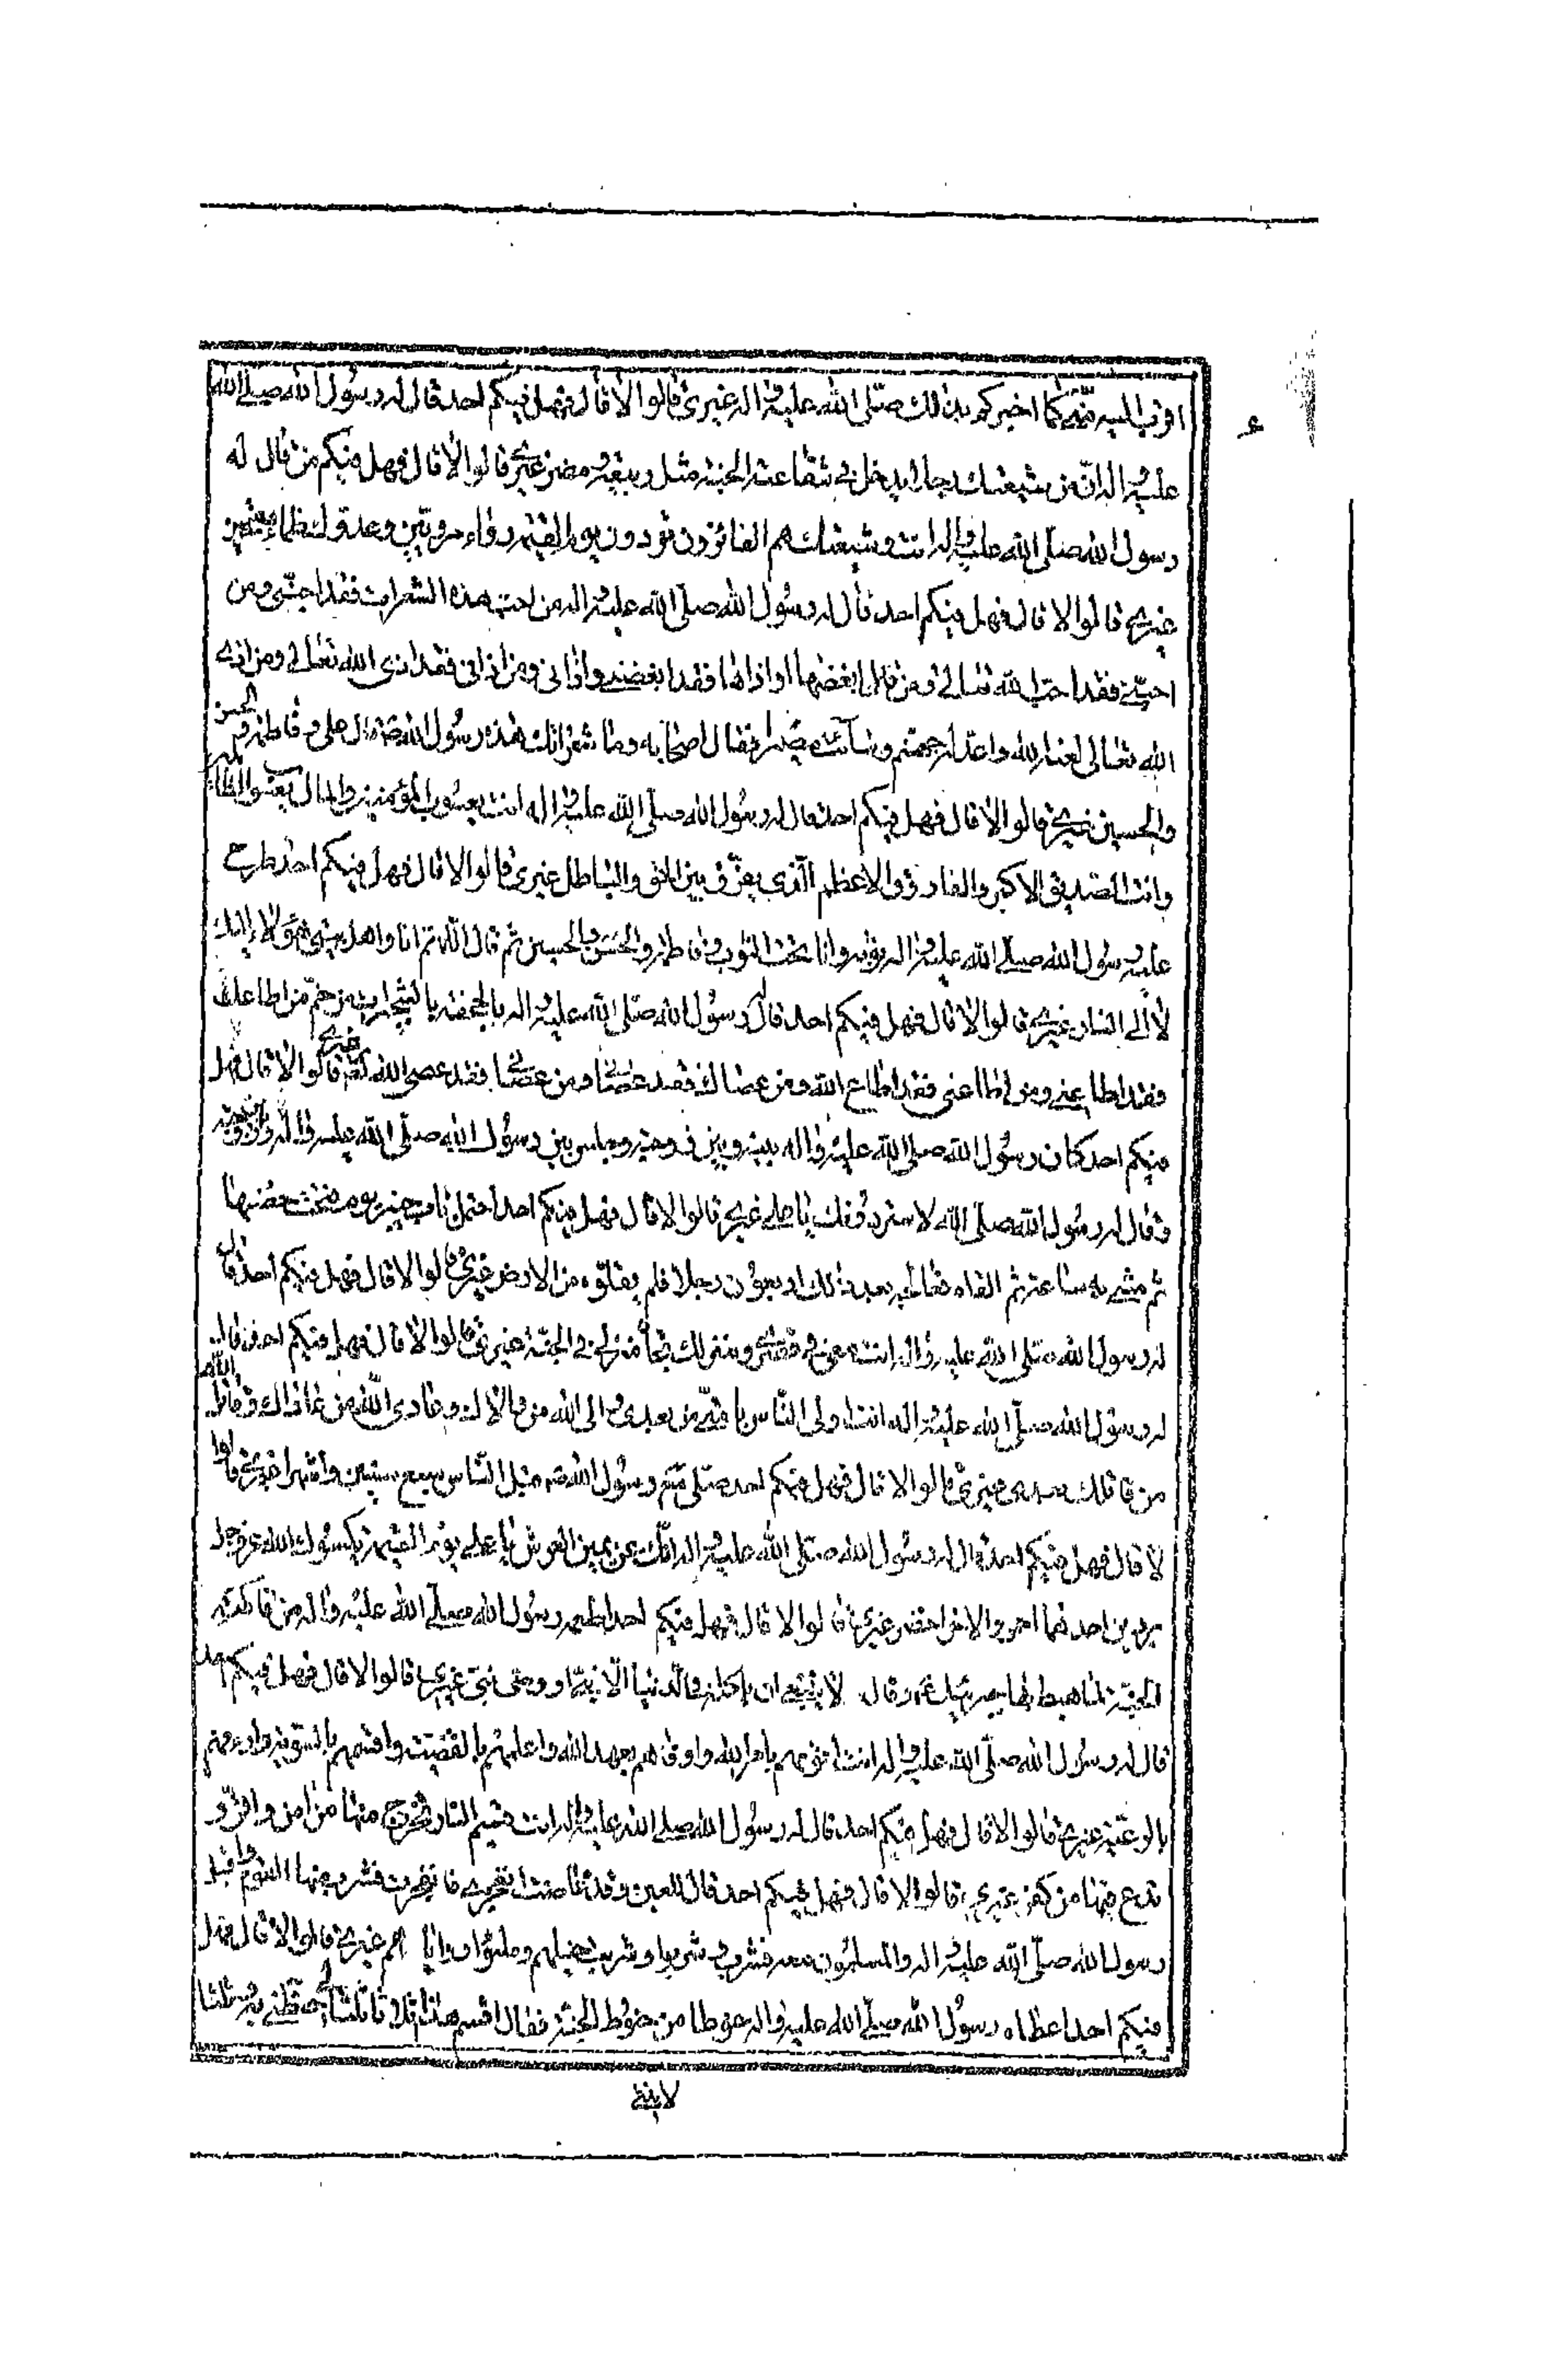 اقرب اليه منّى كما اخبركم بذلك صلّى الله عليه واله غيرى قالوا لا قال فهل فيكم احد قال له رسول الله صلى الله
عليه واله انّ من شيعتك رجلا يدخل فى شفاعته الجنة مثل ربيعة ومضر غيرى قالوا لا قال فهل فيكم من قال له
رسول الله صلّى الله عليه واله انت وشيعتك هم الفائزون تردون يوم القيمة رواء مرويّين وعدوك ظماء مظمئين
غيرى قالوا لا قال فهل فيكم احد قال له رسول الله صلّى الله عليه واله من احبّ هذه الشعرات فقد احبّنى ومن
احبّنى فقد احبّ الله تعالى ومن ابغضها او اذاها فقد ابغضنى واذانى ومن اذانى فقد اذى الله تعالى ومن اذى
الله تعالى لعنه الله واعد له جهنم وسائت مصيرا فقال اصحابه وما شعراتك هذه رسول الله قال على وفاطمة والحسن
والحسين غيرى قالوا لا قال فهل فيكم احد قال له رسول الله صلّى الله عليه واله انت يعسوب المؤمنين والمال يعسوب الظالمين
وانت الصديق الاكبر والفاروق الاعظم الّذى يفرّق بين الحق والباطل غيرى قالوا لا قال فهل فيكم احد طرح
عليه رسول الله صلى الله عليه واله ثوبه وانا تحت الثوب وفاطمة والحسن والحسين ثم قال اللّهم انا واهل بيتى هؤلاء اليك
لا الى النار غيرى قالوا لا قال فهل فيكم احد قال له رسول الله صلّى الله عليه واله بالجحفة بالشجرات من خم من اطاعك
فقد اطاعنى ومن اطاعنى فقد اطاع الله ومن عصاك فقد عصانى ومن عصانى فقد عصى الله تعالى غيرى قالوا لا قال فهل
فيكم احد كان رسول الله صلى الله عليه واله بينه وبين زوجته وجلس بين رسول الله صلّى الله عليه واله وبين زوجته
وقال له رسول الله صلّى الله لا ستر دونك يا على غيرى قالوا لا قال فهل فيكم احد احتمل باب خيبر يوم فتحت حصنها
ثم مشى به ساعة ثم القاه فعالجه بعد ذلك اربعون رجلا فلم يقلّوه من الارض غيرى قالوا لا قال فهل فيكم احد قال
له رسول الله صلى الله عليه واله انت معى فى قصرى ومنزلك تجاه منزلى فى الجنّة غيرى قالوا لا قال فهل فيكم احد قال
له رسول الله صلّى الله عليه واله انت اولى النّاس بامّتى من بعدى والى الله من والاك وعادى الله من عاداك وقاتل الله
من قاتلك بعدى غيرى قالوا لا قال فهل فيكم احد صلّى مع رسول الله قبل النّاس سبع سنين واشهرا غيرى قالوا
لا قال فهل فيكم احد قال له رسول الله صلّى الله عليه واله انّك عن يمين العرش يا على يوم القيمة يكسوك الله عز وجل
بردين احدهما احمر والاخر اخضر غيرى قالوا لا قال فهل فيكم احد اطعمه رسول الله صلى الله عليه واله من فاكهة
الجنّة لما هبط بها جبرئيل وقال لا ينبغى ان ياكله فى الدّنيا الّا نبىّ او وصى نبىّ غيرى قالوا لا قال فهل فيكم احد
قال له رسول الله صلّى الله عليه واله انت اقومهم بامر الله واوفاهم بعهد الله واعلمهم بالقضيّة واقسمهم بالسّويّة وارءفهم
بالرعيّة غيرى قالوا لا قال فهل فيكم احد قال له رسول الله صلى الله عليه واله انت قسيم النار تخرج منها من امن واقرّ و
تدع فيها من كفر غيرى قالوا لا قال فهل فيكم احد قال للعين وقد غاضت انفجرى فانفجرت فشرب منها القوم واقبل
رسول الله صلّى الله عليه واله والمسلمون معه فشرب وشربوا وشرب خيلهم وملئوا رواياهم غيرى قالوا لا قال فهل
فيكم احد اعطاه رسول الله صلى الله عليه واله حنوطا من حنوط الجنّة فقال اقسم هذا اثلاثا ثلثا لى تحنّطنى به وثلثا
لابنتى